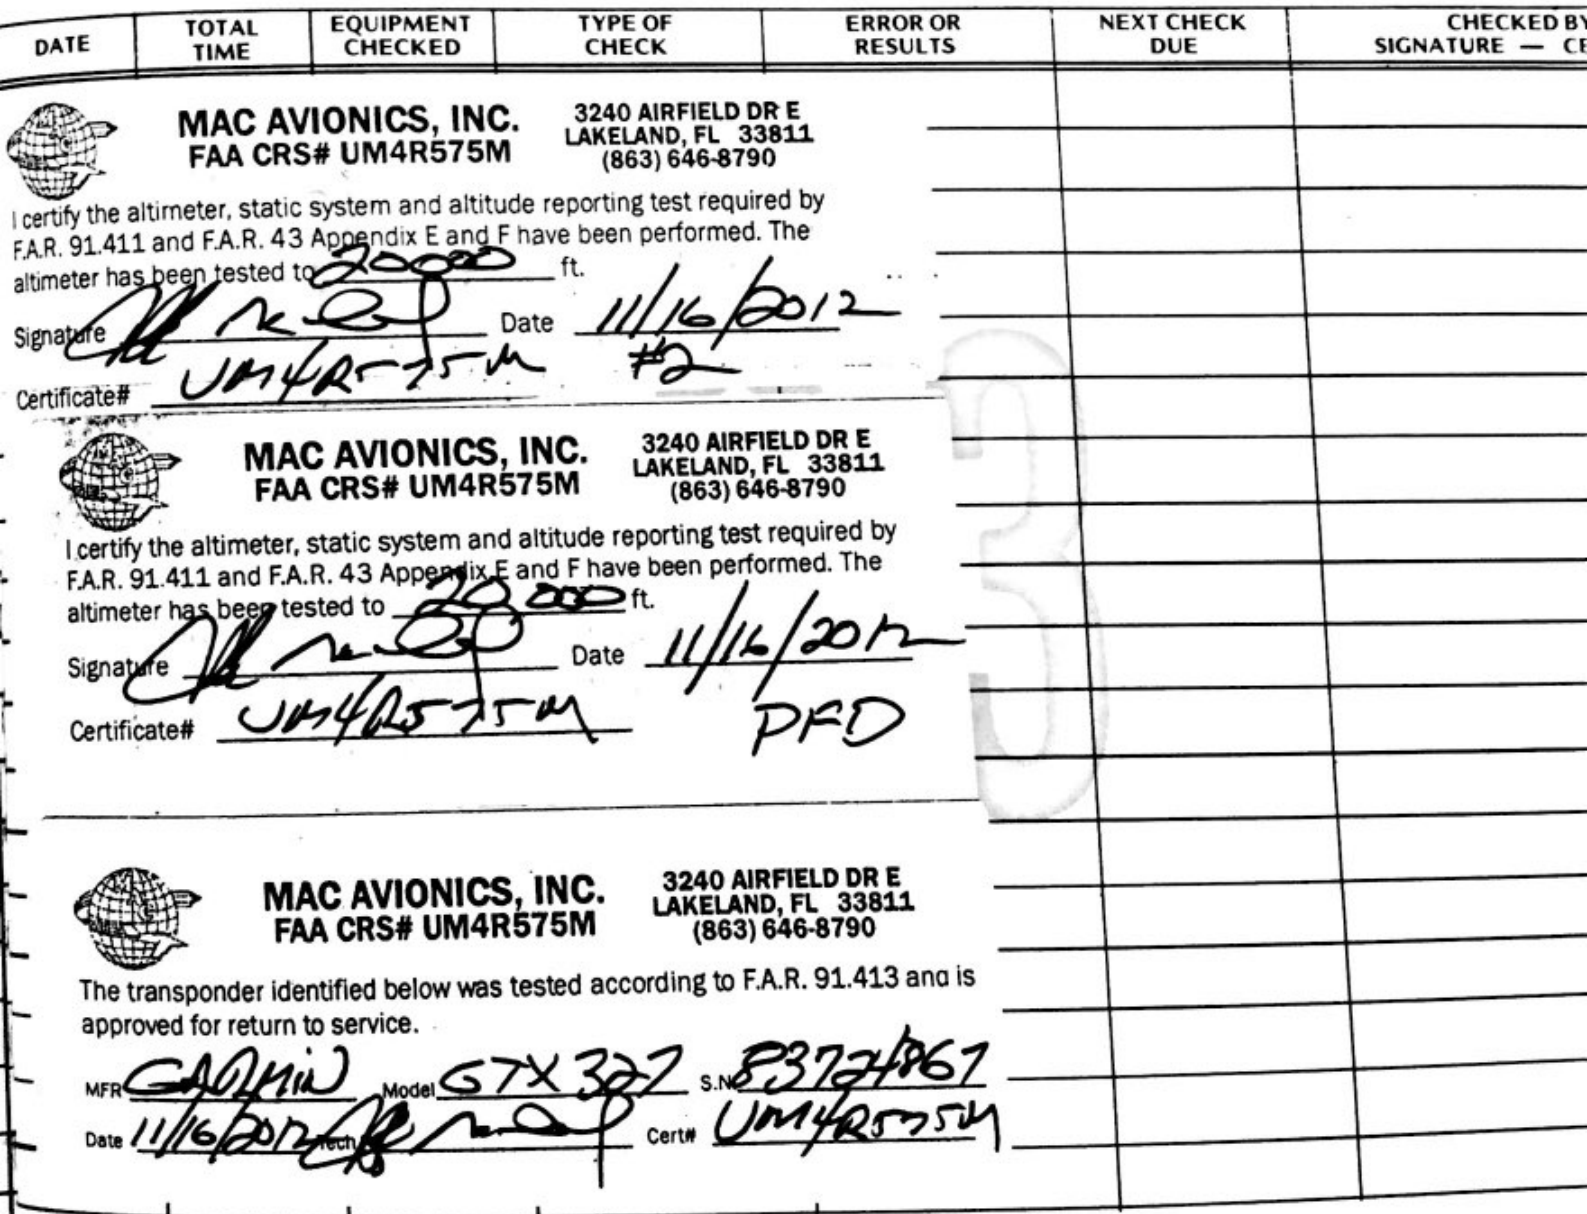 DATE TOTAL TIME EQUIPMENT CHECKED TYPE OF CHECK ERROR OR RESULTS NEXT CHECK DUE CHECKED BY
SIGNATURE —
MAC AVIONICS, INC. 3240 AIRFIELD DR E
FAA CRS# UM4R575M LAKELAND, FL 33811
(863) 646-8790
I certify the altimeter, static system and altitude reporting test required by
F.A.R. 91.411 and F.A.R. 43 Appendix E and F have been performed. The
altimeter has been tested to 20000 ft.
Signature Date 11/16/2012
Certificate# UM4R575M #2
MAC AVIONICS, INC. 3240 AIRFIELD DR E
FAA CRS# UM4R575M LAKELAND, FL 33811
(863) 646-8790
I certify the altimeter, static system and altitude reporting test required by
F.A.R. 91.411 and F.A.R. 43 Appendix E and F have been performed. The
altimeter has been tested to 20 000 ft.
Signature Date 11/16/2012
Certificate# UM4R575M PFD
3
MAC AVIONICS, INC. 3240 AIRFIELD DR E
FAA CRS# UM4R575M LAKELAND, FL 33811
(863) 646-8790
The transponder identified below was tested according to F.A.R. 91.413 and is
approved for return to service.
MFR GARMIN Model GTX 327 S.N. 83724867
Date 11/16/2012 Tech Cert# UM4R575M